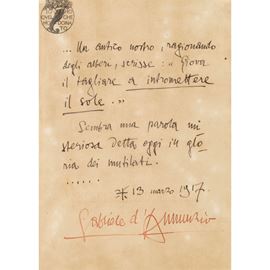 ... Un antico nostro, ragionando
degli alberi, scrisse: "Giova
il tagliare a intromettere
il sole."
Sembra una parola mi
steriosa detta oggi in glo
ria dei mutilati.
.....
13 marzo 1917.
Gabriele d'Annunzio